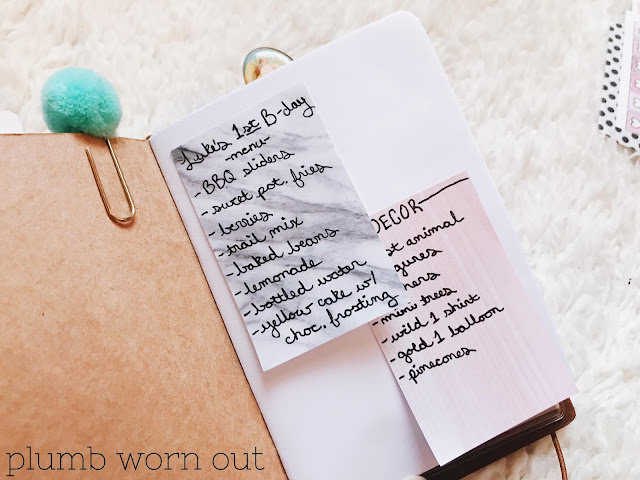 Luke's 1st B-day
-menu-
-BBQ sliders
-sweet pot. fries
-berries
-trail mix
-baked beans
-lemonade
-bottled water
-yellow cake w/
choc. frosting
DECOR
animal
-mini trees
-wild 1 shirt
-gold 1 balloon
-pinecones
plumb worn out